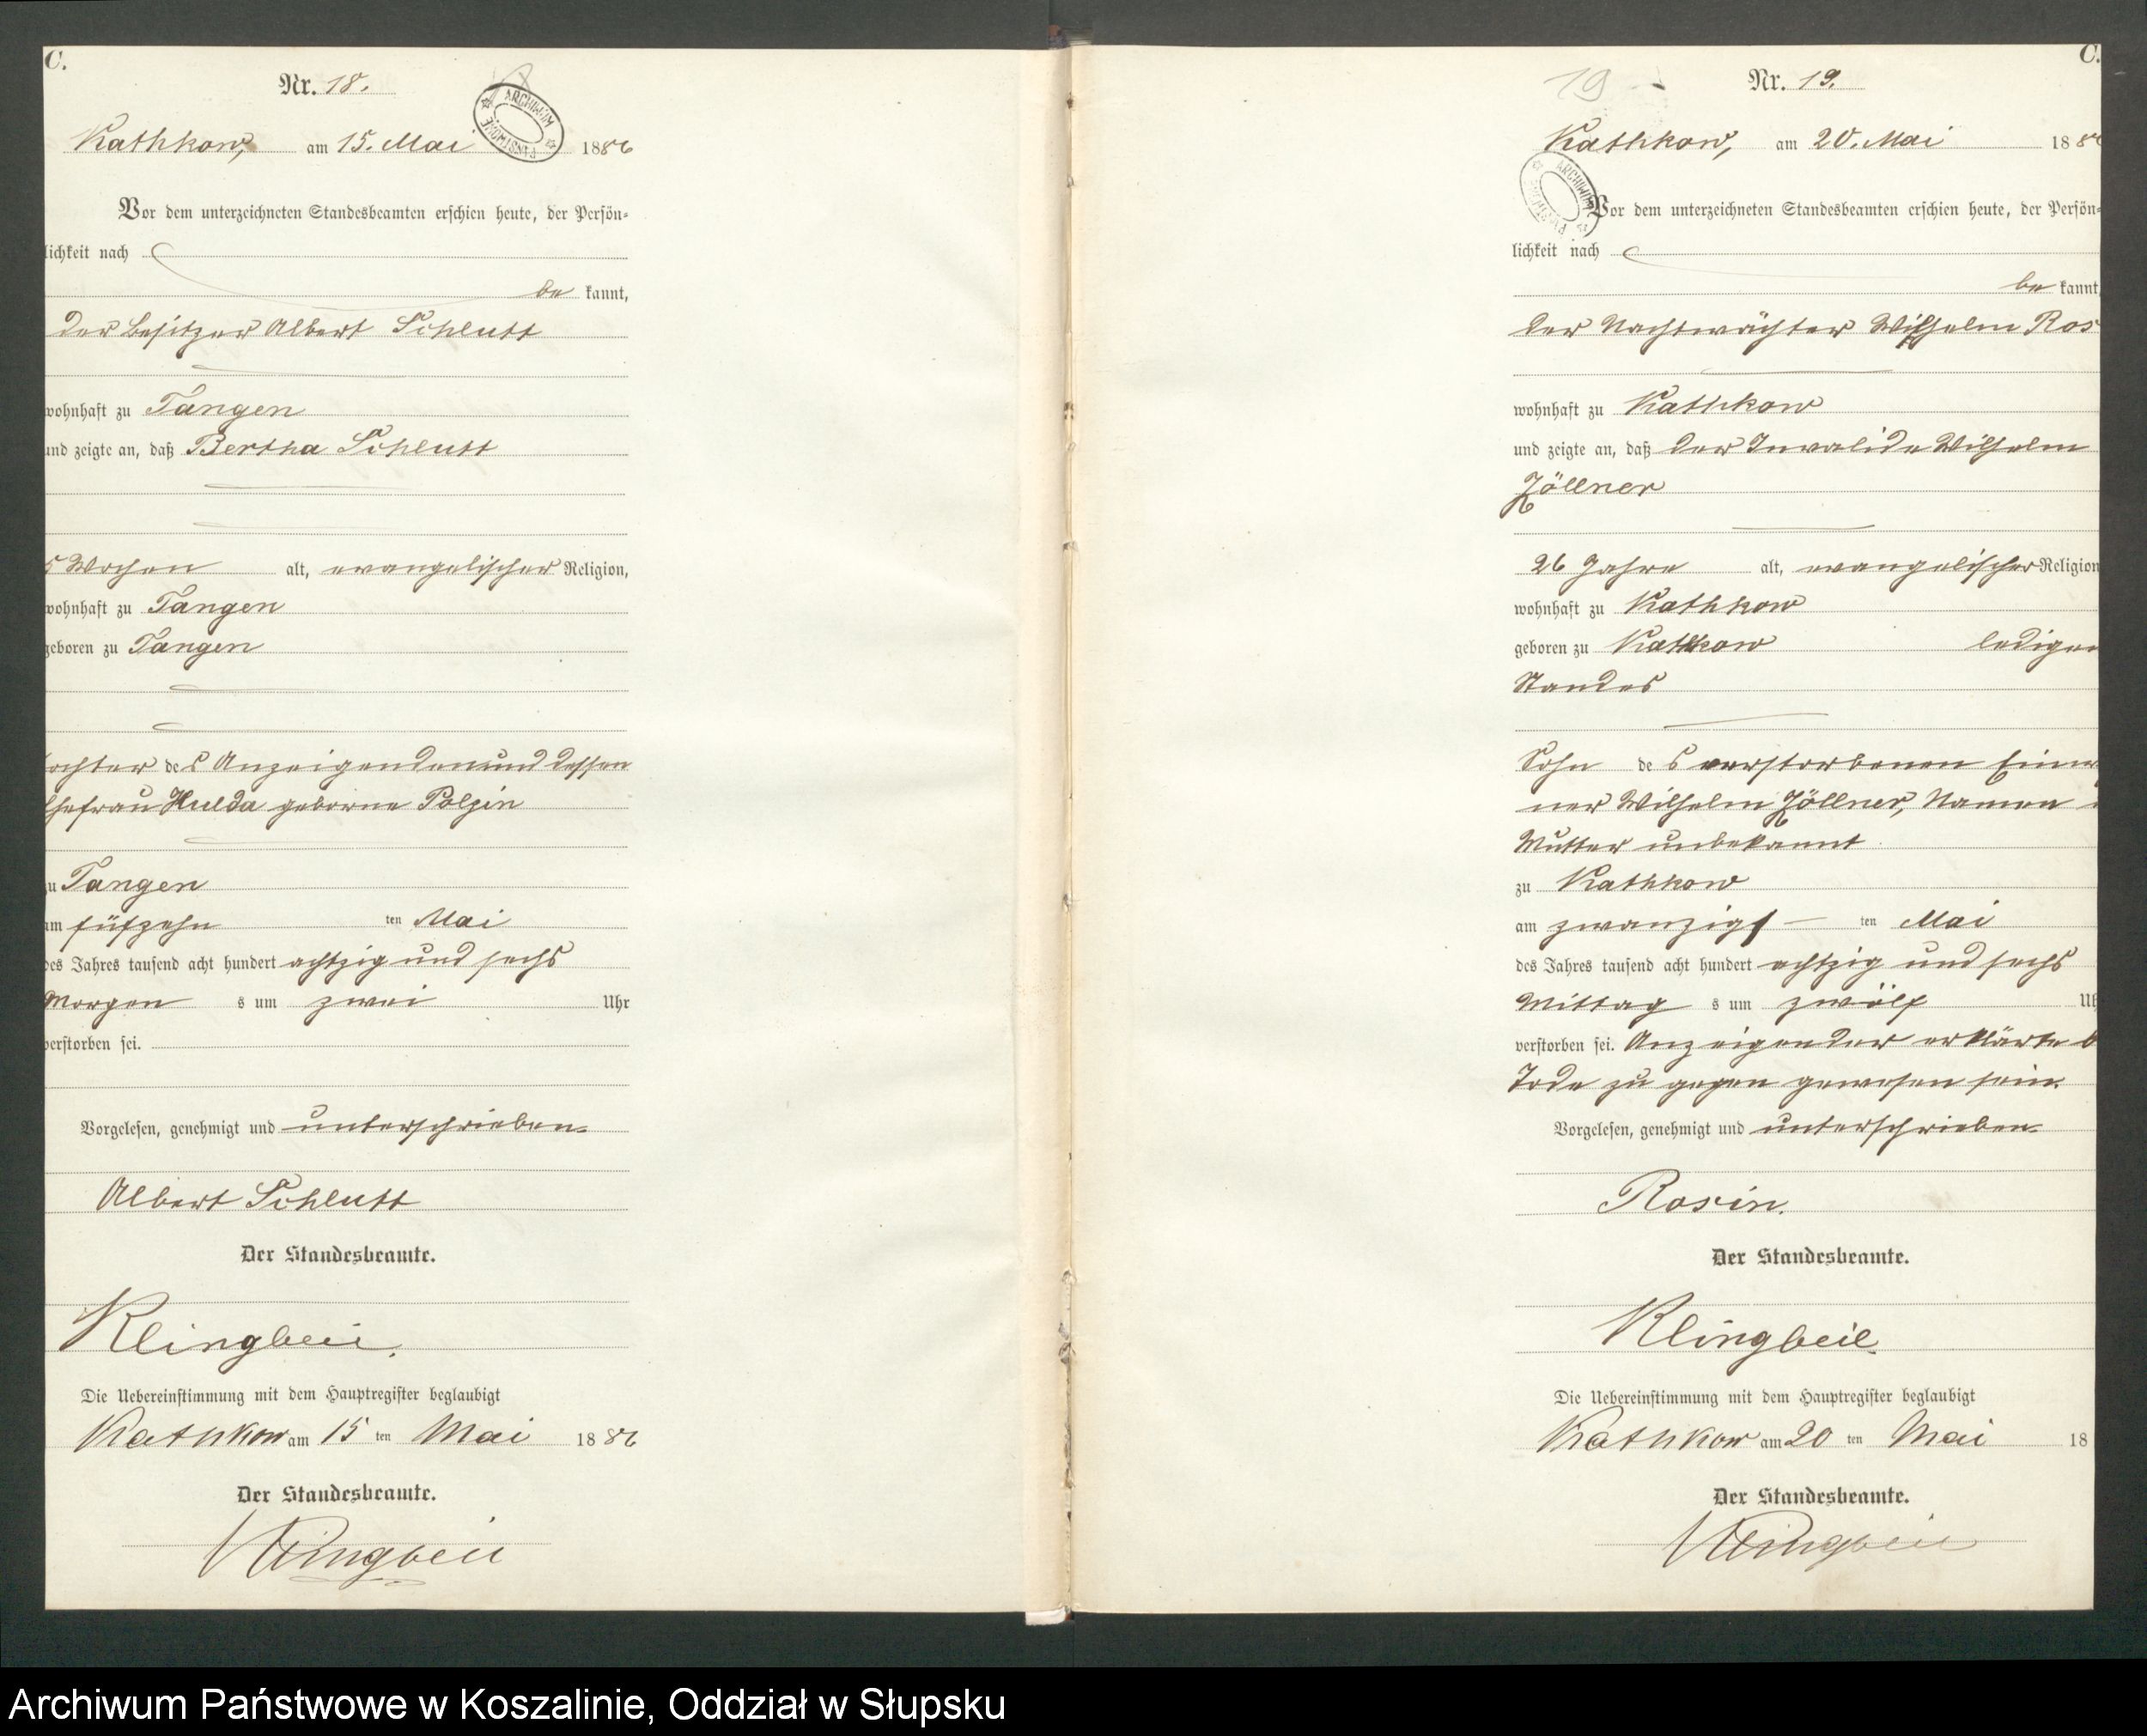 C.
Nr. 18.
ARCHIWUM PAŃSTWOWE
Kathkow, am 15. Mai 1886
Vor dem unterzeichneten Standesbeamten erschien heute, der Persön-
lichkeit nach
be kannt,
der Besitzer Albert Schlutt
wohnhaft zu Tangen
und zeigte an, daß Bertha Schlutt
5 Wochen alt, evangelischer Religion,
wohnhaft zu Tangen
geboren zu Tangen
ochter des Anzeigenden und dessen
Ehefrau Hulda geborne Polzin
zu Tangen
am füfzehn ten Mai
des Jahres tausend acht hundert achtzig und sechs
Morgen s um zwei Uhr
verstorben sei.
Vorgelesen, genehmigt und unterschrieben
Albert Schlutt
Der Standesbeamte.
Klingbeil.
Die Uebereinstimmung mit dem Hauptregister beglaubigt
Kathkow am 15 ten Mai 1886
Der Standesbeamte.
Klingbeil
C.
19
Nr. 19.
Kathkow, am 20. Mai 188
ARCHIWUM PAŃSTWOWE
Vor dem unterzeichneten Standesbeamten erschien heute, der Persön-
lichkeit nach
be kannt,
der Nachtwächter Wilhelm Ros
wohnhaft zu Kathkow
und zeigte an, daß der Invalide Wilhelm
Zöllner
26 Jahre alt, evangelischer Religion
wohnhaft zu Kathkow
geboren zu Kathkow ledigen
Standes
Sohn des verstorbenen Einw
ner Wilhelm Zöllner, Namen
Mutter unbekannt
zu Kathkow
am zwanzigs ten Mai
des Jahres tausend acht hundert achtzig und sechs
Mittag s um zwölf Uh
verstorben sei. Anzeigender erklärte b
Tode zu gegen gewesen sein.
Vorgelesen, genehmigt und unterschrieben
Rosin.
Der Standesbeamte.
Klingbeil.
Die Uebereinstimmung mit dem Hauptregister beglaubigt
Kathkow am 20 ten Mai 18
Der Standesbeamte.
Klingbeil
Archiwum Państwowe w Koszalinie, Oddział w Słupsku